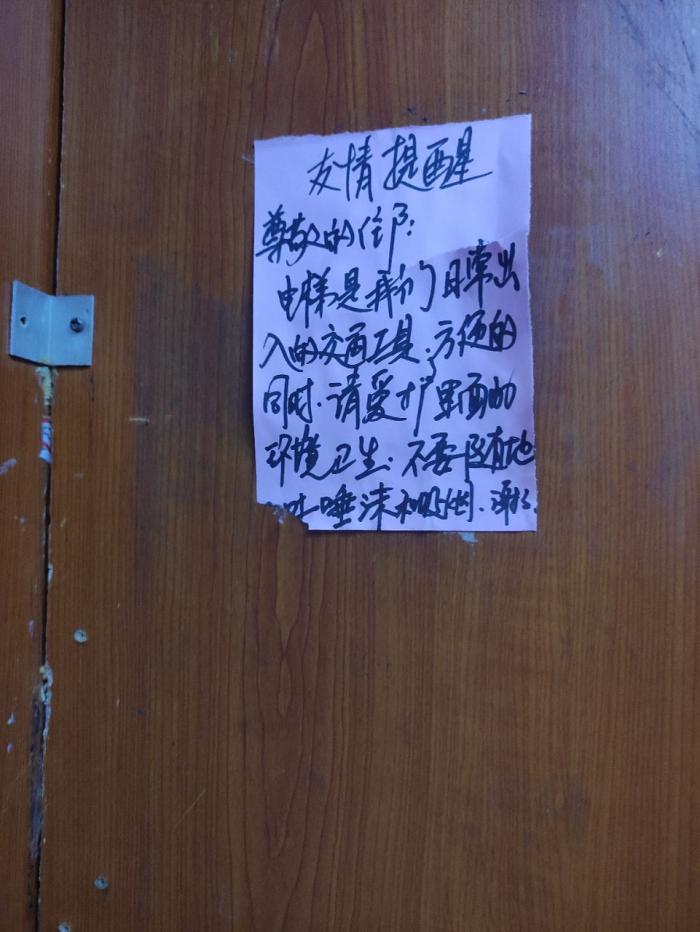 友情提醒
尊敬的住户:
电梯是我们日常出
入的交通工具.方便的
同时.请爱护里面的
环境卫生.不要随地
吐唾沫和吸烟.谢谢.